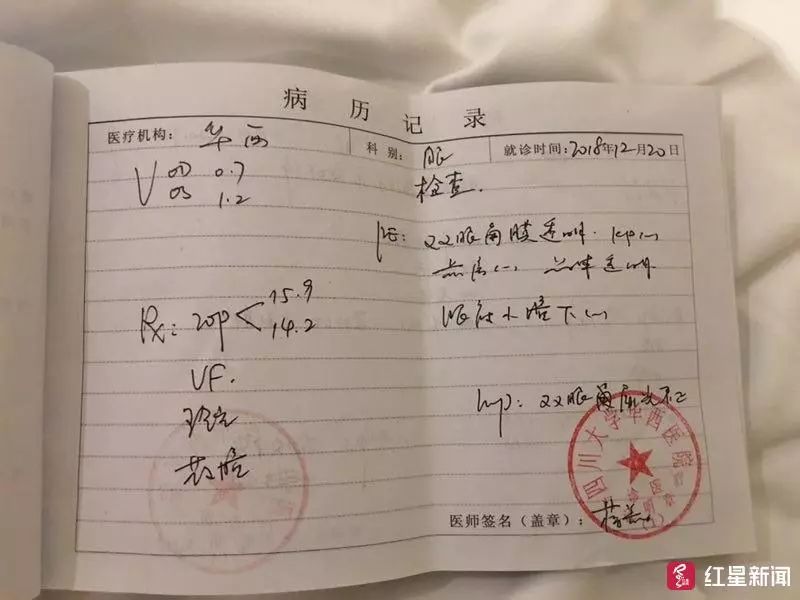 病 历 记 录
医疗机构： 华西 科 别： 眼 就诊时间：2018年12月20日
V OD 0.7
OS 1.2
检查.
PE: 双眼角膜透明. KP(-)
晶体透明
眼底小瞳下(-)
Rx: IOP < 15.9
14.2
VF.
Imp: 双眼屈光不正
四川大学华西医院
医师签名（盖章）：
红星新闻